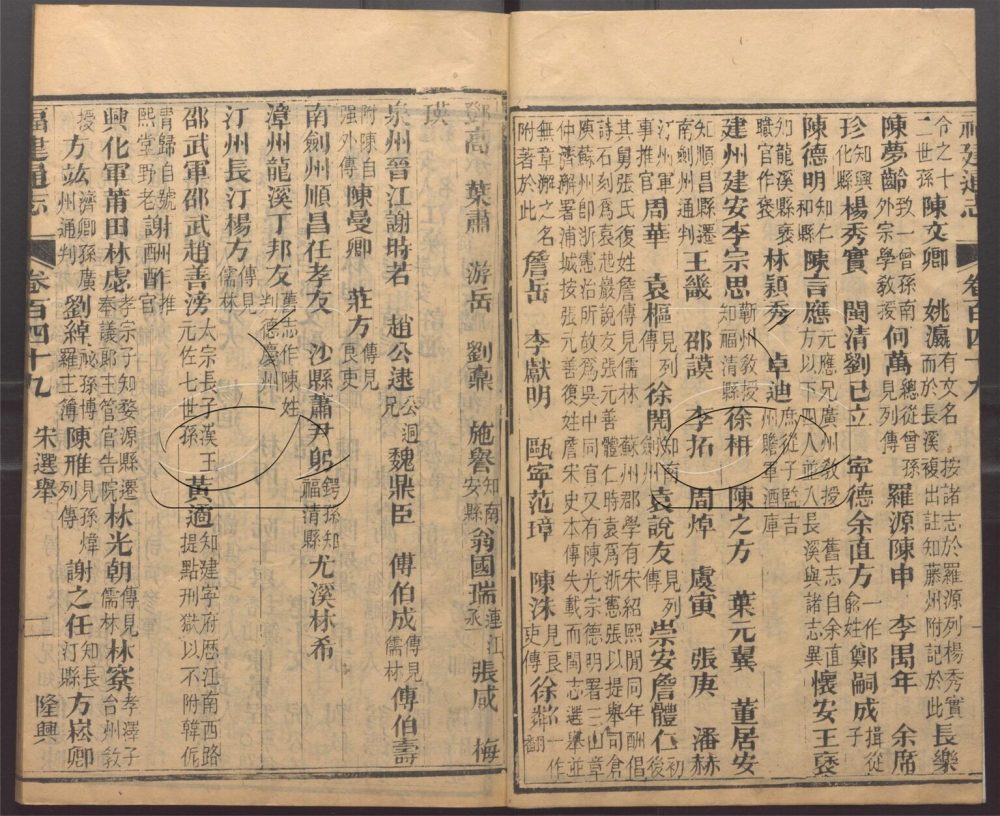 福建通志 卷百四十九
令之十 陳文卿 姚瀛 有文名 按諸志於羅源列楊秀實 長樂
二世孫 而於長溪複出註知藤州附記於此
陳夢齡 致一曾孫南外宗學教授 何萬 總從曾孫見列傳 羅源陳申 李禺年 余席
珍 知興化縣 楊秀實 閩清劉已立 寧德余直方 一作俞姓 鄭嗣成 揖從子
陳德明 知仁和縣 陳言應 元應兄廣州教授 舊志自余直方以下四人並入長溪與諸志異 懷安王褒
知龍溪縣褒職官作褎 林穎秀 卓迪 庶從子監吉州贍軍酒庫
建州建安李宗思 蘄州教授知福清縣 徐枏 陳之方 葉元翼 董居安
知順昌縣遷南劍州通判 王畿 邵謨 李拓 周焯 虞寅 張庚 潘赫
汀州軍事推官 周華 袁樞 見列傳 徐閌 知南劍州 袁說友 見列傳 崇安詹體仁 初後
其舅張氏復姓詹傳見儒林 蘇州郡學有宋紹熙閒同年酬倡
詩石刻爲袁說友張元善體仁時袁爲浙憲張以提舉司倉
庾蘇州卽浙憲治所故爲吳中同官又有陳光宗德明署三山章
仲濟澥署浦城按張元善復姓詹宋史本傳失載而閩志選舉並
無章澥之名附著於此 詹岳 李獻明 甌寧范璋 陳洙 見良吏傳 徐 一作翻
鄧高 葉肅 游岳 劉鼐 施譽 知南安縣 翁國瑞 連江丞 張咸 梅
瑛
泉州晉江謝時若 趙公逮 公迵兄 魏鼎臣 傅伯成 傳見儒林 傅伯壽
附陳自强外傳 陳曼卿 莊方 傳見良吏
南劍州順昌任孝友 沙縣蕭尹躬 鍔孫知福清縣 尤溪林希
漳州龍溪丁邦友 舊志作陳姓判德慶州
汀州長汀楊方 傳見儒林
邵武軍邵武趙善滂 太宗長子漢王元佐七世孫 黃適 知建寧府歷江南西路提點刑獄以不附韓侂
冑歸自號熙堂野老 謝酬酢 州推官
興化軍莆田林虙 孝宗子知婺源縣遷奉議郎主管官告院 林光朝 傳見儒林 林寮 孝澤子台州教
授 方竑 濟孫廣州通判 劉綽 祕孫博羅主簿 陳雅 見孫煒列傳 謝之任 知長汀縣 方崧卿
福建通志 卷百四十九 宋選舉 二 隆興